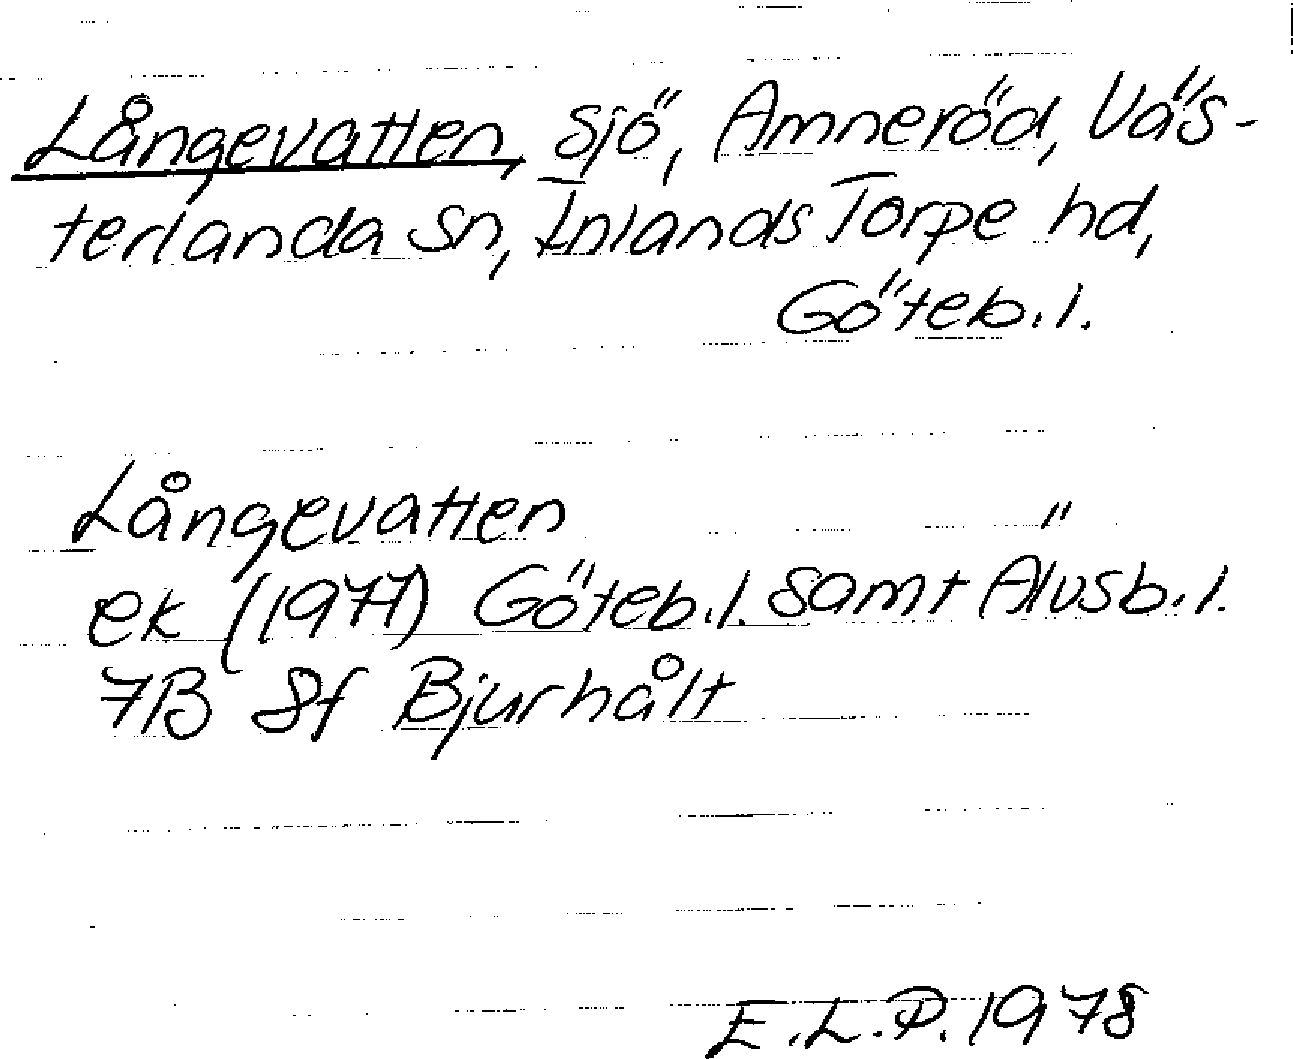 Långevatten, sjö, Amneröd, Väs-
terlanda sn, Inlands Torpe hd,
Göteb.l.
Långevatten
ek (1977) Göteb.l. samt Älvsb.l.
7B 8f Bjurhålt
E.L.P. 1978